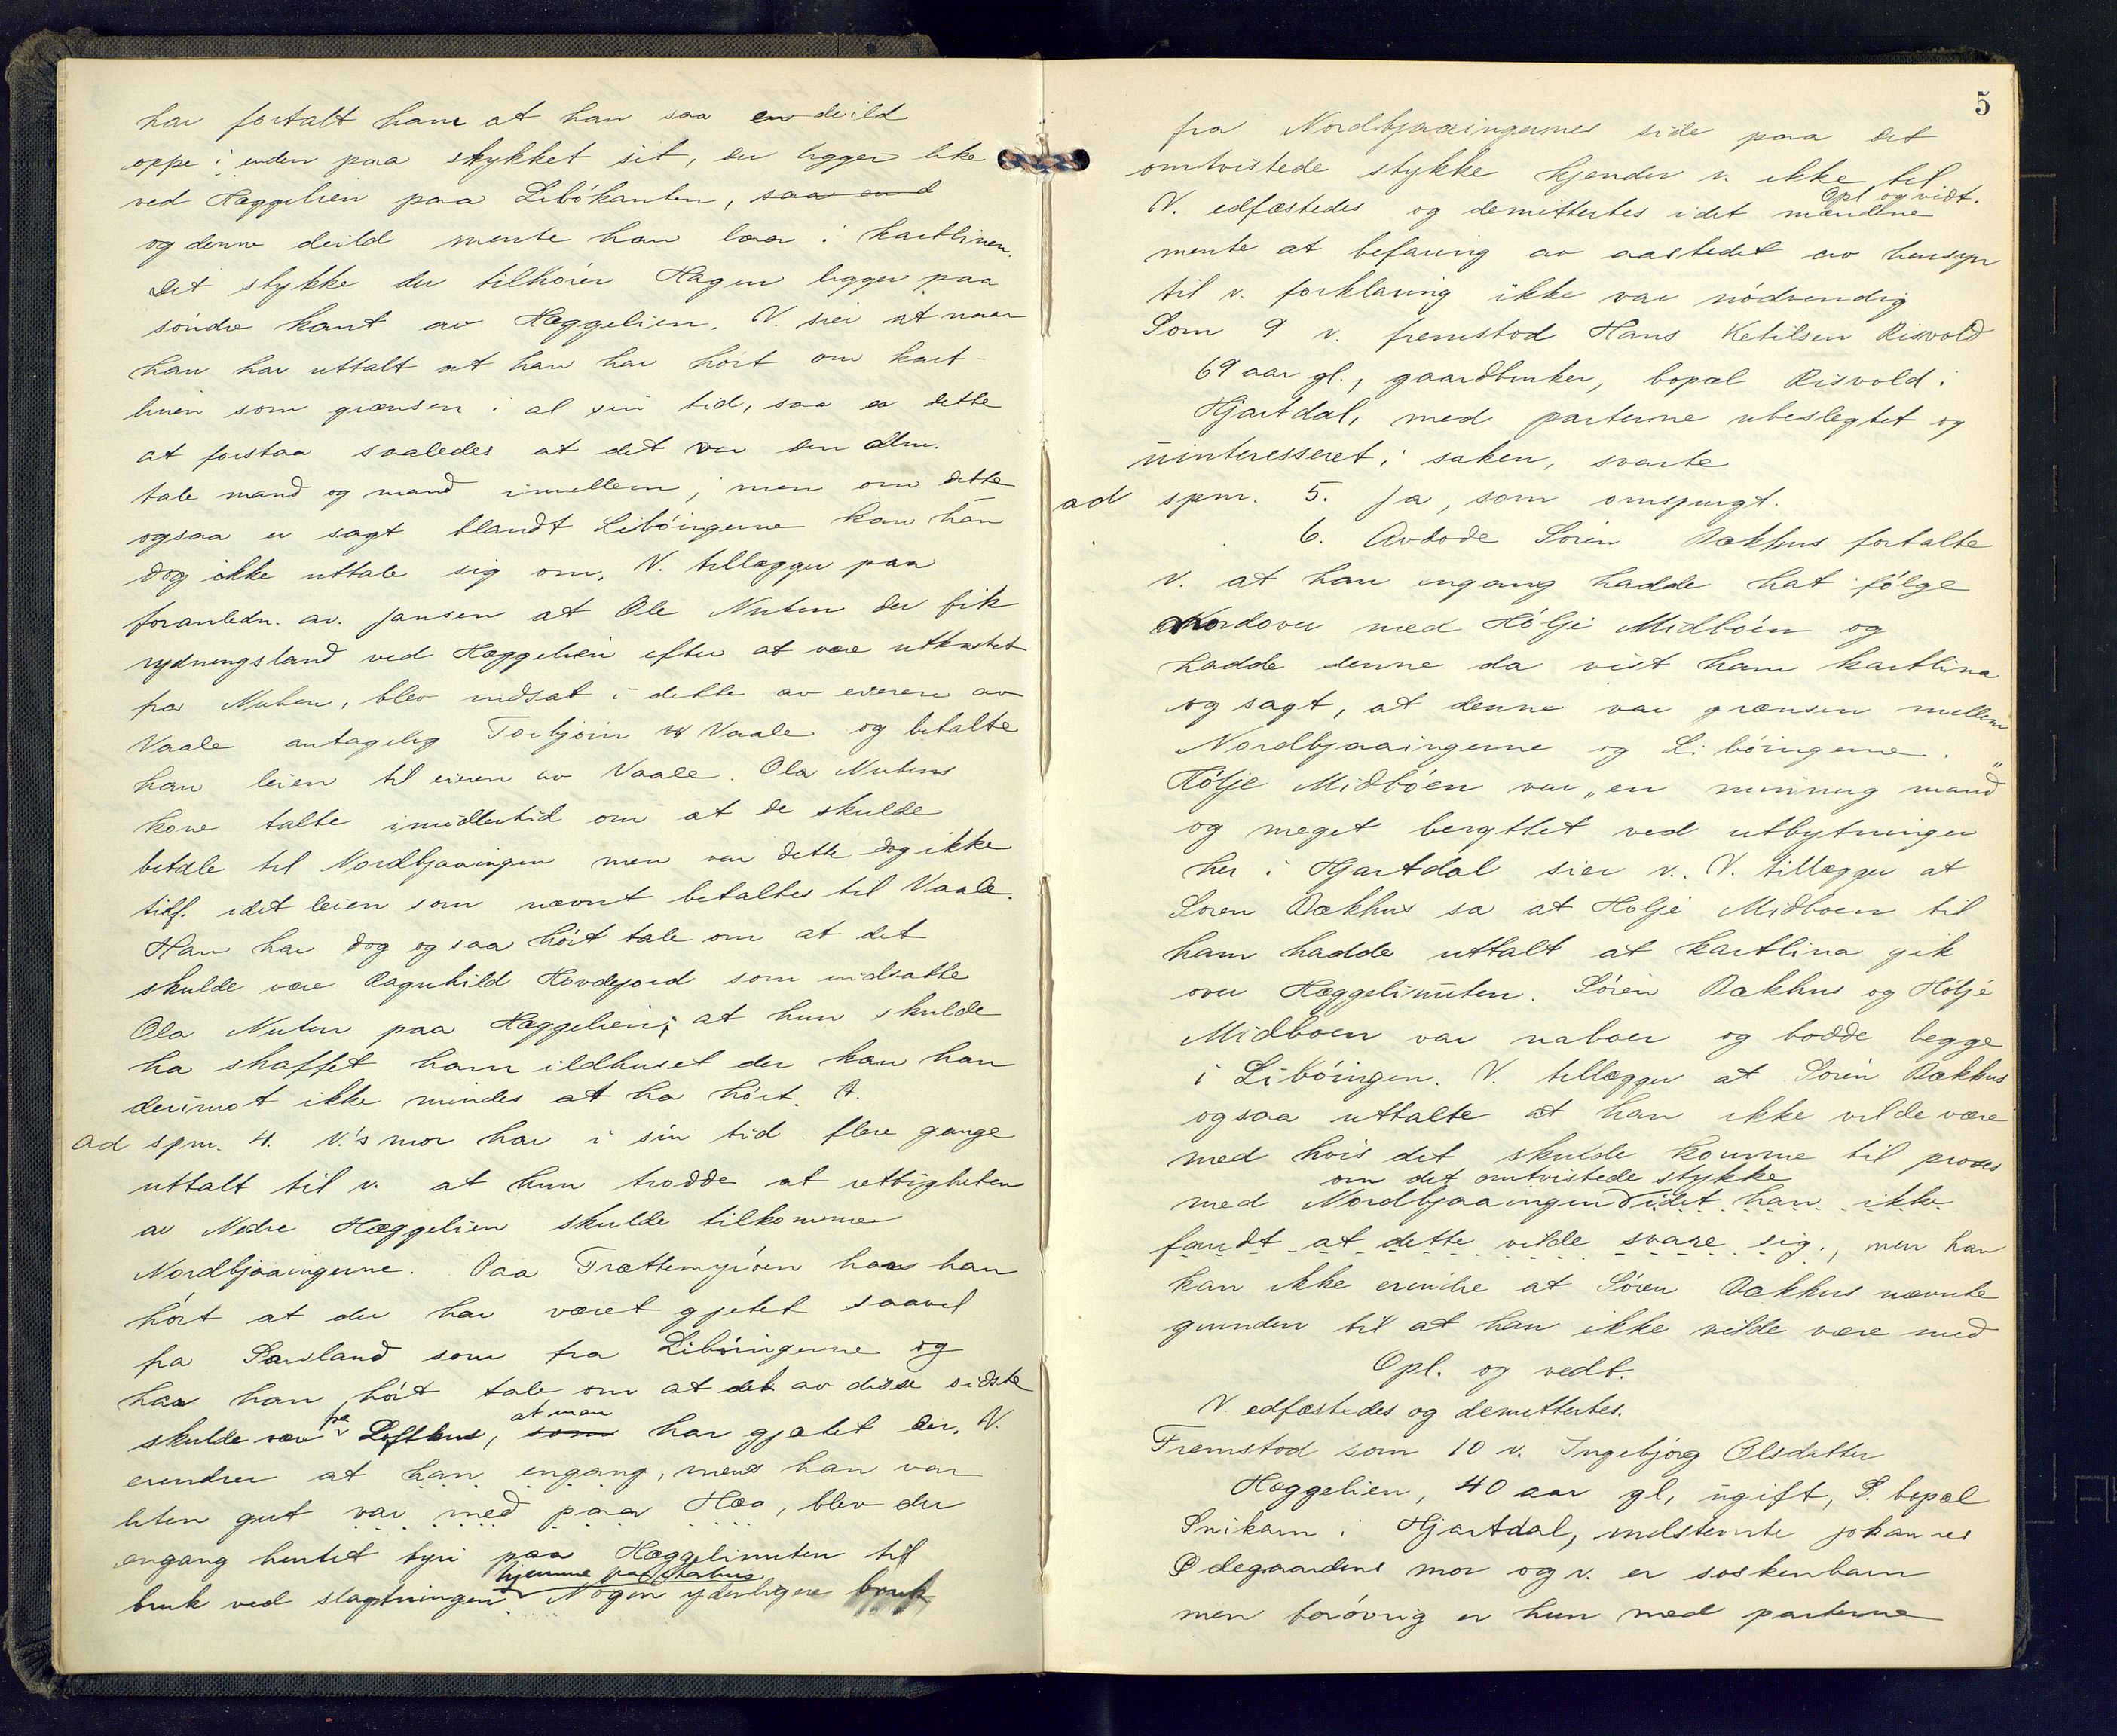 har fortalt ham at han saa en deild
oppe i enden paa stykket sit, der ligger like
ved Hæggelien paa Libökanten, saa end
og denne deild mente han laa i kartlinen.
Det stykke der tilhörer Hagen ligger paa
söndre kant av Hæggelien. V. sier at naar
han har uttalt at han har hört om kart-
linien som grænsen i al sin tid, saa er dette
at forstaa saaledes at det var den alm.
tale mand og mand imellem, men om dette
ogsaa er sagt blandt Liböingerne kan han
dog ikke uttale sig om. V. tillægger paa
foranledn. av. Jansen at Ole Nuten der fik
rydningsland ved Hæggelien efter at være utkastet
fra Nuten, blev indsat i dette av eieren av
Vaale antagelig Torbjörn Vaale og betalte
han leien til eieren av Vaale. Ola Nutens
kone talte imidlertid om at de skulde
betale til Nordbjaaingen men var dette dog ikke
tilf. idet leien som nævnt betaltes til Vaale.
Han har dog ogsaa hört tale om at det
skulde være Ragnhild Hovdejord som indsatte
Ola Nuten paa Hæggelien; at hun skulde
ha skaffet ham ildhuset der kan han
derimot ikke mindes at ha hört.
ad spm. 4. V.'s mor har i sin tid flere gange
uttalt til v. at hun trodde at rettigheten
av Nedre Hæggelien skulde tilkomme
Nordbjaaingerne. Paa Trættemyröen har han
hört at der har været gjetet saavel
fra Sauland som fra Liböingerne og
har han hört tale om at det av disse sidste
skulde være fra Lofthus, som at man har gjætet der. V.
erindrer at han engang, mens han var
liten gut var med paa Hæa, blev der
engang hentet tyri paa Hæggelinuten til
bruk ved slagtningen hjemme paa Nogen yderligere bruk
5
fra Nordbjaaingernes side paa det
omtvistede stykke kjender v. ikke til
Opl og vedt.
V. edfæstedes og demittertes idet mændene
mente at befaring av aastedet av hensyn
til v. forklaring ikke var nödvendig
Som 9 v. fremstod Hans Ketilsen Risvold
69 aar gl., gaardbruker, bopæl Risvold i
Hjartdal, med parterne ubeslegtet og
uinteresseret i saken, svarte
ad spm. 5. Ja, som omspurgt.
6. Avdöde Sören Bækhus fortalte
v. at han engang hadde hat fölge
nordover med Hölje Midböen og
hadde denne da vist ham kartlina
og sagt, at denne var grænsen mellem
Nordbjaaingerne og Liböingerne.
Hölje Midböen var „en minnug mand"
og meget benyttet ved utbytninger
her i Hjartdal sier v. V. tillægger at
Sören Bækhus sa at Hölje Midböen til
ham hadde uttalt at kartlina gik
over Hæggelinuten. Sören Bækhus og Hölje
Midböen var naboer og bodde begge
i Liböingen. V. tillægger at Sören Bækhus
ogsaa uttalte at han ikke vilde være
med hvis det skulde komme til proces
om det omtvistede stykke
med Nordbjaaingen idet han ikke
fandt at dette vilde svare sig., men han
kan ikke erindre at Sören Bækhus nævnte
grunden til at han ikke vilde være med
Opl. og vedt.
V. edfæstedes og demittertes.
Fremstod som 10 v. Ingebjörg Olsdatter
Hæggelien, 40 aar gl, ugift, P. bopæl
Snikarn i Hjartdal, indstevnte Johannes
Ödegaardens mor og v. er söskenbarn
men forövrig er hun med parterne